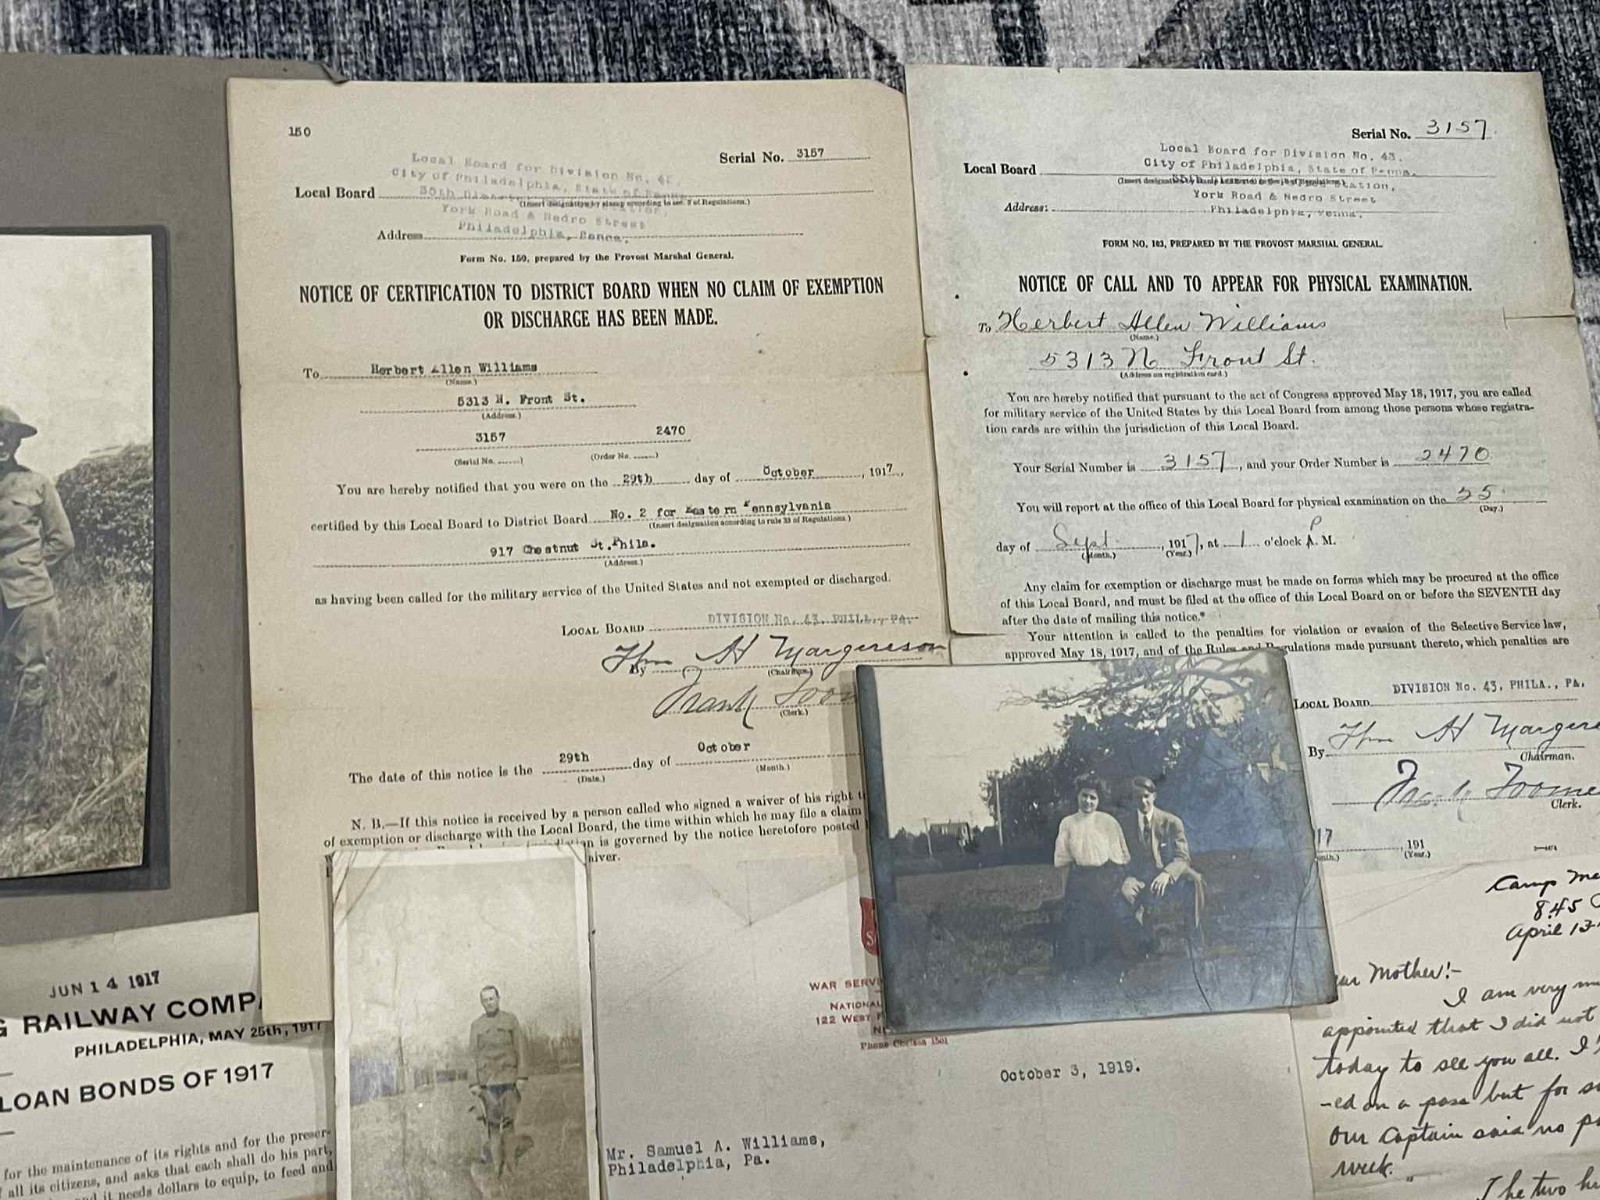 150
Serial No. 3157
Local Board for Division No. 4
City of Philadelphia, State of Penna.
Local Board 35th
(Insert designation by stamp according to sec. 8 of Regulations.)
York Road & Nedro Street
Address Philadelphia, Penna.
Form No. 150, prepared by the Provost Marshal General.
NOTICE OF CERTIFICATION TO DISTRICT BOARD WHEN NO CLAIM OF EXEMPTION
OR DISCHARGE HAS BEEN MADE.
To Herbert Allen Williams
(Name.)
5313 N. Front St.
(Address.)
3157 2470
(Serial No. ......) (Order No. ......)
You are hereby notified that you were on the 29th day of October, 1917,
certified by this Local Board to District Board No. 2 for Eastern Pennsylvania
(Insert designation according to rule 33 of Regulations.)
917 Chestnut St. Phila.
(Address.)
as having been called for the military service of the United States and not exempted or discharged.
LOCAL BOARD DIVISION No. 43, PHILA., PA.
By H Margereson
(Chairman.)
Frank
(Clerk.)
The date of this notice is the 29th day of October
(Date.) (Month.)
N. B.—If this notice is received by a person called who signed a waiver of his right
of exemption or discharge with the Local Board, the time within which he may file a claim
is governed by the notice heretofore posted
waiver.
Serial No. 3157
Local Board for Division No. 43.
City of Philadelphia, State of Penna.
Local Board
Station,
York Road & Nedro Street
Address: Philadelphia, Penna.
FORM NO. 103, PREPARED BY THE PROVOST MARSHAL GENERAL.
NOTICE OF CALL AND TO APPEAR FOR PHYSICAL EXAMINATION.
To Herbert Allen Williams
(Name.)
5313 N. Front St.
(Address on registration card.)
You are hereby notified that pursuant to the act of Congress approved May 18, 1917, you are called
for military service of the United States by this Local Board from among those persons whose registra-
tion cards are within the jurisdiction of this Local Board.
Your Serial Number is 3157, and your Order Number is 2470
You will report at the office of this Local Board for physical examination on the
(Day.)
day of Sept., 1917, at 1 o'clock P. M.
(Month.) (Year.)
Any claim for exemption or discharge must be made on forms which may be procured at the office
of this Local Board, and must be filed at the office of this Local Board on or before the SEVENTH day
after the date of mailing this notice.*
Your attention is called to the penalties for violation or evasion of the Selective Service law,
approved May 18, 1917, and of the Rules and Regulations made pursuant thereto, which penalties are
LOCAL BOARD DIVISION No. 43, PHILA., PA.
By H Margere
Chairman.
Clerk.
17, 191
(Year.)
JUN 14 1917
G RAILWAY COMPA
PHILADELPHIA, MAY 25th, 1917
LOAN BONDS OF 1917
for the maintenance of its rights and for the preser-
all its citizens, and asks that each shall do his part,
it needs dollars to equip, to feed and
WAR SERV
NATIONAL
122 WEST
Phone Chelsea 1501
October 3, 1919.
Mr. Samuel A. Williams,
Philadelphia, Pa.
Camp Me
8.45
April 13
ear Mother!-
I am very mu
appointed that I did not
today to see you all. I
-ed on a pass but for so
our Captain said no pa
week.
The two hu